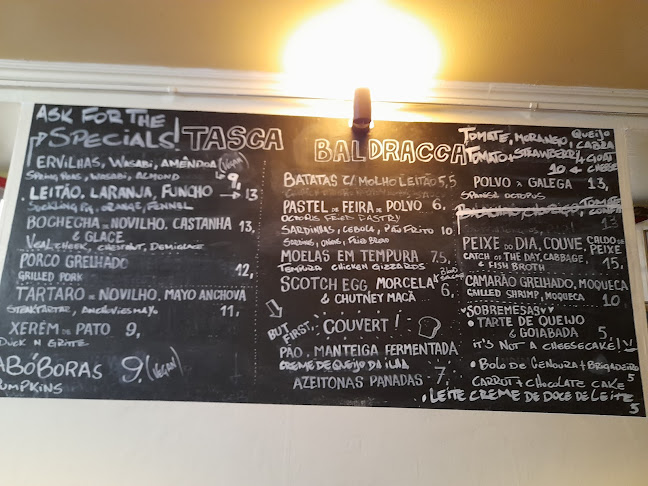 ASK FOR THE
SPECIALS!
TASCA BALDRACCA
ERVILHAS, WASABI, AMÊNDOA (VEGAN)
SPRING PEAS, WASABI, ALMOND 9,
LEITÃO, LARANJA, FUNCHO 13
SUCKLING PIG, ORANGE, FENNEL
BOCHECHA DE NOVILHO, CASTANHA 13,
& GLACE
VEAL CHEEK, CHESTNUT, DEMIGLACE
PORCO GRELHADO
GRILLED PORK 12,
TARTARO DE NOVILHO, MAYO ANCHOVA
STEAK TARTAR, ANCHOVIES MAYO 11,
XERÉM DE PATO 9,
DUCK N GRITTS
ABÓBORAS 9, (VEGAN)
PUMPKINS
BATATAS C/ MOLHO LEITÃO 5,5
PASTEL DE FEIRA DE POLVO 6,
OCTOPUS FRIED PASTRY
SARDINHAS, CEBOLA, PÃO FRITO 10
SARDINES, ONIONS, FRIED BREAD
MOELAS EM TEMPURA 7,5
TEMPURA CHICKEN GIZZARDS
SCOTCH EGG, MORCELA BLOOD SAUSAGE
& CHUTNEY MAÇÃ 6,
BUT FIRST,
COUVERT!
PÃO, MANTEIGA FERMENTADA
CREME DE QUEIJO DA ILHA
AZEITONAS PANADAS 7,
TOMATE, MORANGO, QUEIJO CABRA
TOMATO + STRAWBERRY + GOAT CHEESE
10
POLVO À GALEGA 13,
SPANISH OCTOPUS
13
PEIXE DO DIA, COUVE, CALDO DE PEIXE
CATCH OF THE DAY, CABBAGE,
& FISH BROTH 15,
CAMARÃO GRELHADO, MOQUECA
GRILLED SHRIMP, MOQUECA 10
SOBREMESAS
• TARTE DE QUEIJO
& GOIABADA 5,
IT'S NOT A CHEESECAKE!
• BOLO DE CENOURA + BRIGADEIRO
CARROT + CHOCOLATE CAKE 5
• LEITE CREME DE DOCE DE LEITE 5